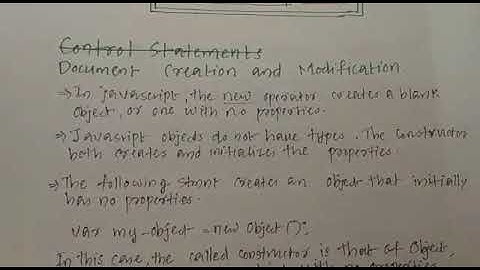 Control Statements
Document Creation and Modification
⇒ In javascript, the new operator creates a blank
object, or one with no properties.
⇒ Javascript objects do not have types. The constructor
both creates and initializes the properties.
⇒ The following stmnt creates an object that initially
has no properties.
var my-object = new Object();
In this case, the called constructor is that of Object,
with no properties